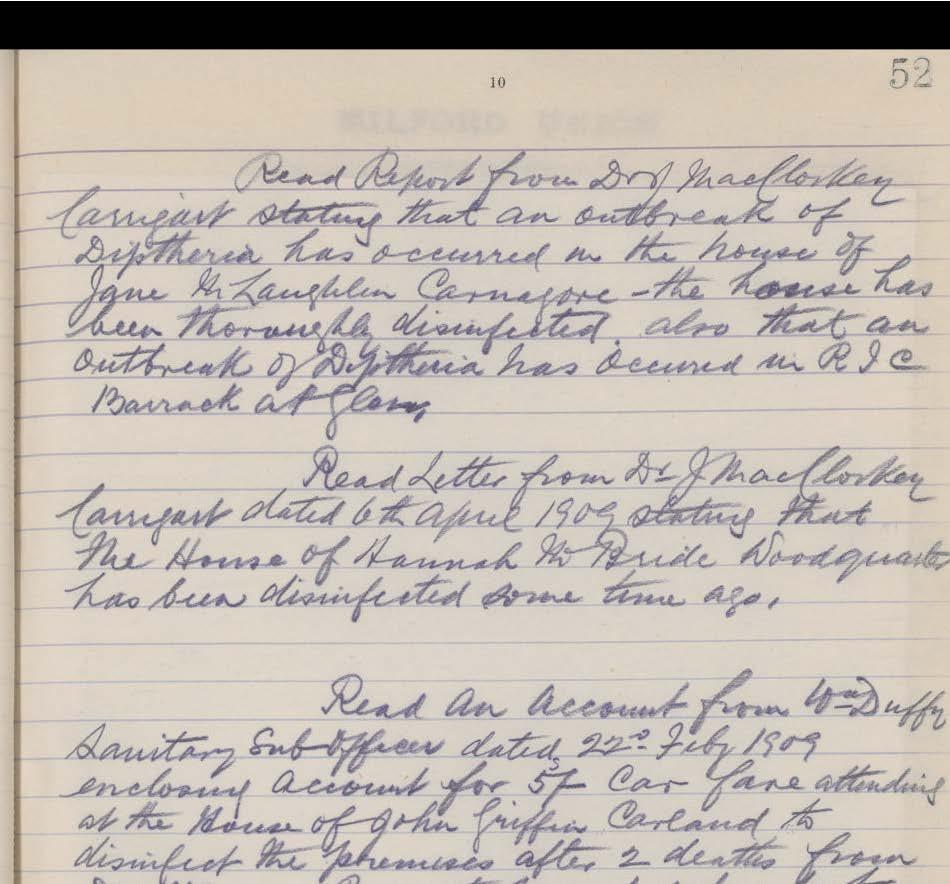 10
52
MILFORD UNION
Read Report from Dr J MacCloskey
Carrigart stating that an outbreak of
Diptheria has occurred in the house of
Jane McLaughlin Carnagore - the house has
been thoroughly disinfected. also that an
outbreak of Diptheria has occured in R I C
Barrack at Glen,
Read Letter from Dr J MacCloskey
Carrigart dated 6th April 1909 stating that
the House of Hannah McBride Woodquarter
has been disinfected some time ago.
Read An Account from Wm Duffy
Sanitary Sub Officer dated 22nd Feby 1909
enclosing account for 5/- Car fare attending
at the House of John Griffin Carland to
disinfect the premises after 2 deaths from